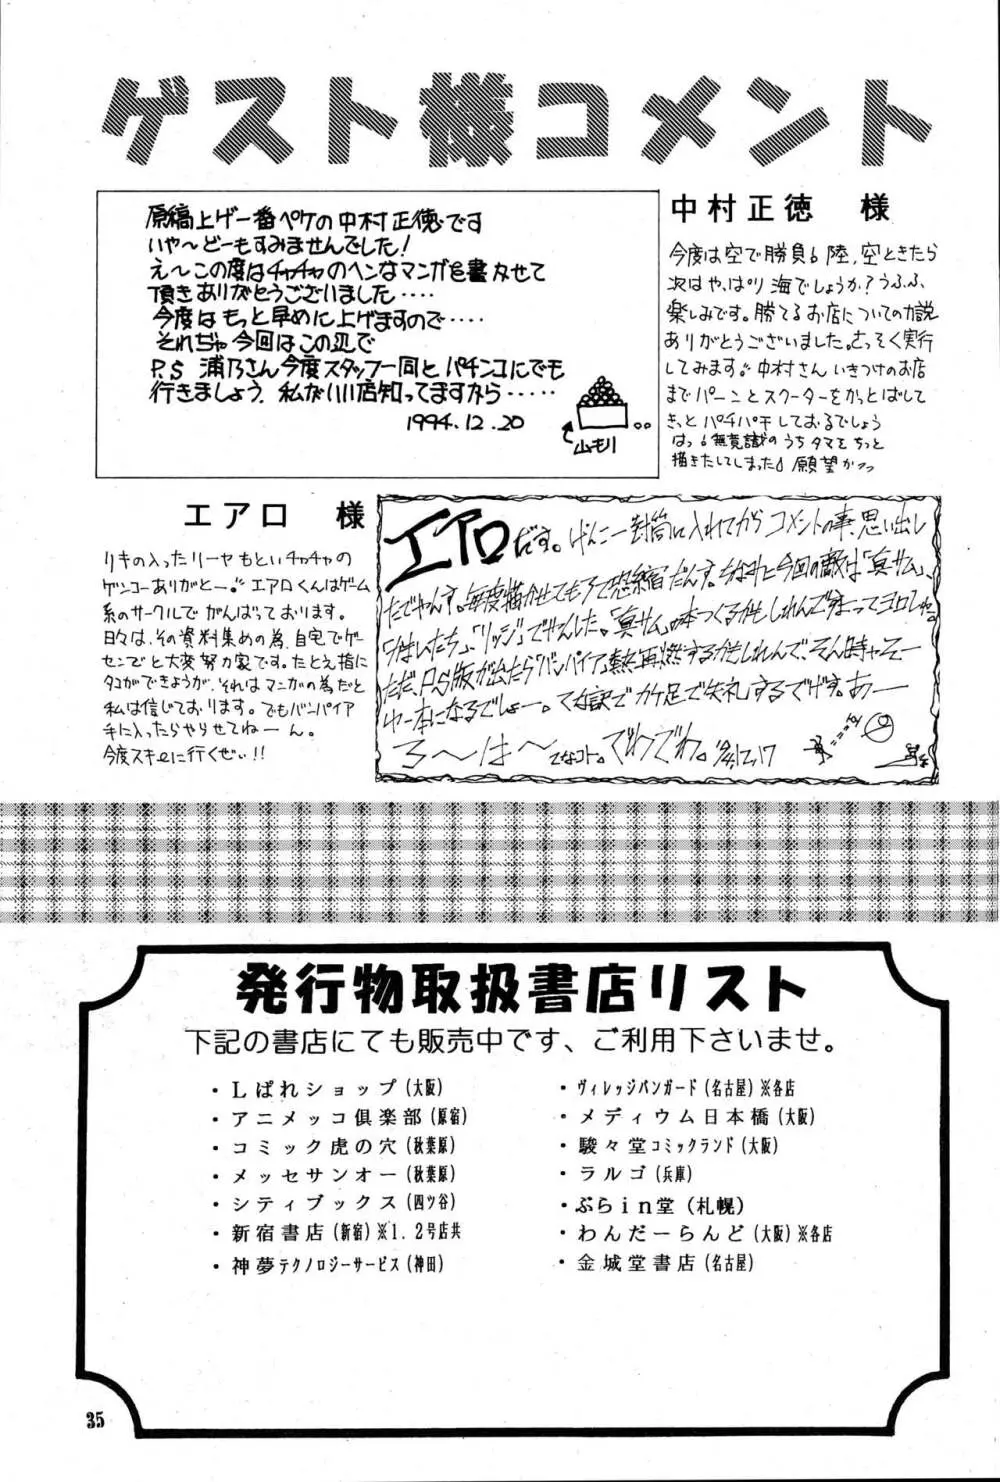 ゲスト様コメント
原稿上げ一番ペケの中村正徳です
いや～どーもすみませんでした!
え～この度はチャチャのヘンなマンガを書かせて
頂きありがとうございました‥‥
今度はもっと早めに上げますので‥‥
それぢゃ今回はこの辺で
P.S 浦乃さん今度スタッフ一同とパチンコにでも
行きましょう. 私がいい店知ってますから‥‥‥
1994.12.20
山モリ
中村正徳 様
今度は空で勝負 陸,空ときたら
次はやっぱり海でしょうか?うふふ、
楽しみです。勝てるお店についての力説
ありがとうございました。さっそく実行
してみます。中村さん いきつけのお店
までパーンとスクーターをかっとばして
きっと パチパチしておるでしょう
はっ 無意識のうちタマをもっと
描きたしてしまった 願望かっっ
エアロ 様
リキの入ったリーヤ もといチャチャの
ゲンコーありがとー。エアロくんはゲーム
系のサークルで がんばっております。
日々は、その資料集めの為、自宅でゲー
センでと大変努力家です。たとえ指に
タコができようが、それはマンガの為だと
私は信じております。でもバンパイア
手に入ったらやらせてねーん。
今度スキーに行くぜい!!
エアロだす。げんこー封筒に入れてからコメントの事、思い出し
たでやんす。毎度描かせてもろて恐縮だんす。ちなみに今回の敵は「真サム」、
「リッジ」でやんした。「真サム」の本つくるかもしれんで、まってヨロシ
ただ、P.S版が出たら「バンパイア」熱再燃するかもしれんで、そん時ゃそー
ゆー本になるでしょー。て訳でカケ足で失礼するでげす。あー
ろ～は～ てなコト。でわでわ。
発行物取扱書店リスト
下記の書店にても販売中です、ご利用下さいませ。
・しぱれショップ(大阪)
・アニメッコ倶楽部(原宿)
・コミック虎の穴(秋葉原)
・メッセサンオー(秋葉原)
・シティブックス(四ツ谷)
・新宿書店(新宿)※1.2号店共
・神夢テクノロジーサービス(神田)
・ヴィレッジバンガード(名古屋)※各店
・メディウム日本橋(大阪)
・駿々堂コミックランド(大阪)
・ラルゴ(兵庫)
・ぶらin堂(札幌)
・わんだーらんど(大阪)※各店
・金城堂書店(名古屋)
35